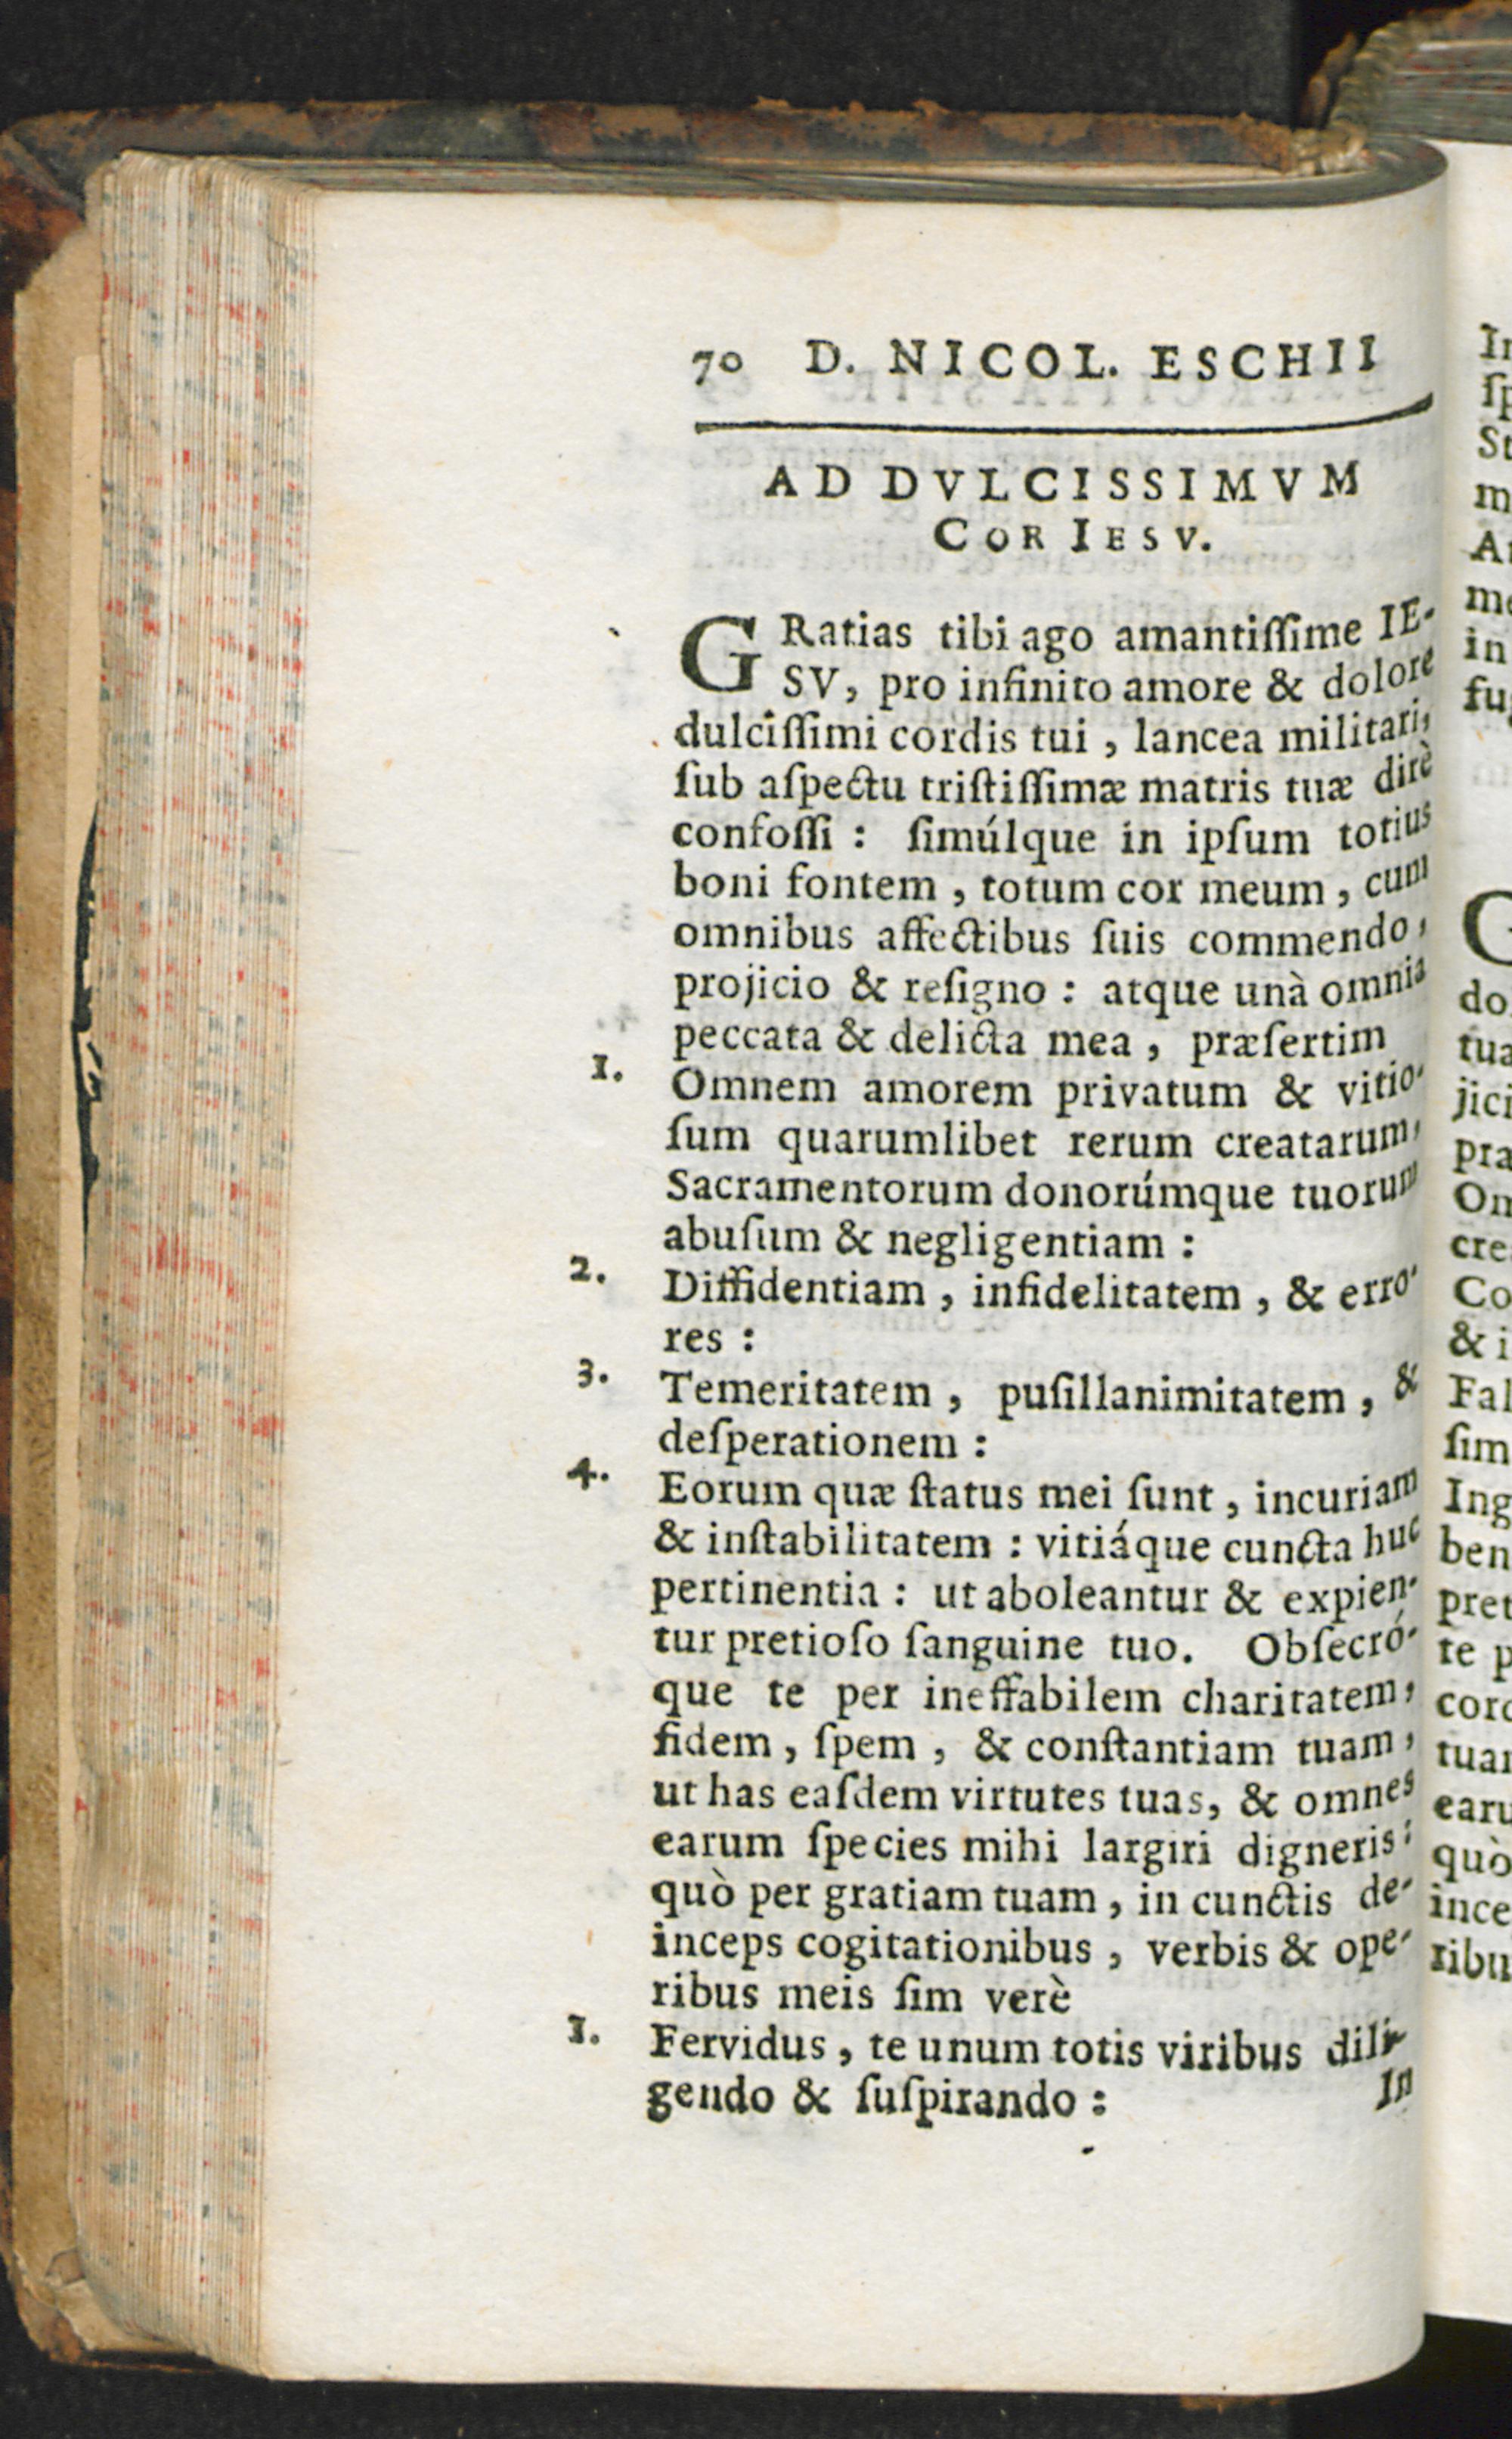 70 D. NICOL. ESCHII
AD DVLCISSIMVM
COR IESV.
GRatias tibi ago amantiſſime IE-
SV, pro infinito amore & dolore
dulciſſimi cordis tui, lancea militari,
ſub aſpectu triſtiſſimæ matris tuæ dirè
confoſſi : ſimúlque in ipſum totius
boni fontem, totum cor meum, cum
omnibus affectibus ſuis commendo,
projicio & reſigno : atque unà omnia
peccata & delicta mea, præſertim
1. Omnem amorem privatum & vitio-
ſum quarumlibet rerum creatarum,
Sacramentorum donorúmque tuorum
abuſum & negligentiam :
2. Diffidentiam, infidelitatem, & erro-
res :
3. Temeritatem, puſillanimitatem, &
deſperationem :
4. Eorum quæ ſtatus mei ſunt, incuriam
& inſtabilitatem : vitiáque cuncta huc
pertinentia : ut aboleantur & expien-
tur pretioſo ſanguine tuo. Obſecró-
que te per ineffabilem charitatem,
fidem, ſpem, & conſtantiam tuam,
ut has eaſdem virtutes tuas, & omnes
earum ſpecies mihi largiri digneris :
quò per gratiam tuam, in cunctis de-
inceps cogitationibus, verbis & ope-
ribus meis ſim verè
1. Fervidus, te unum totis viribus dili-
gendo & ſuſpirando :
In